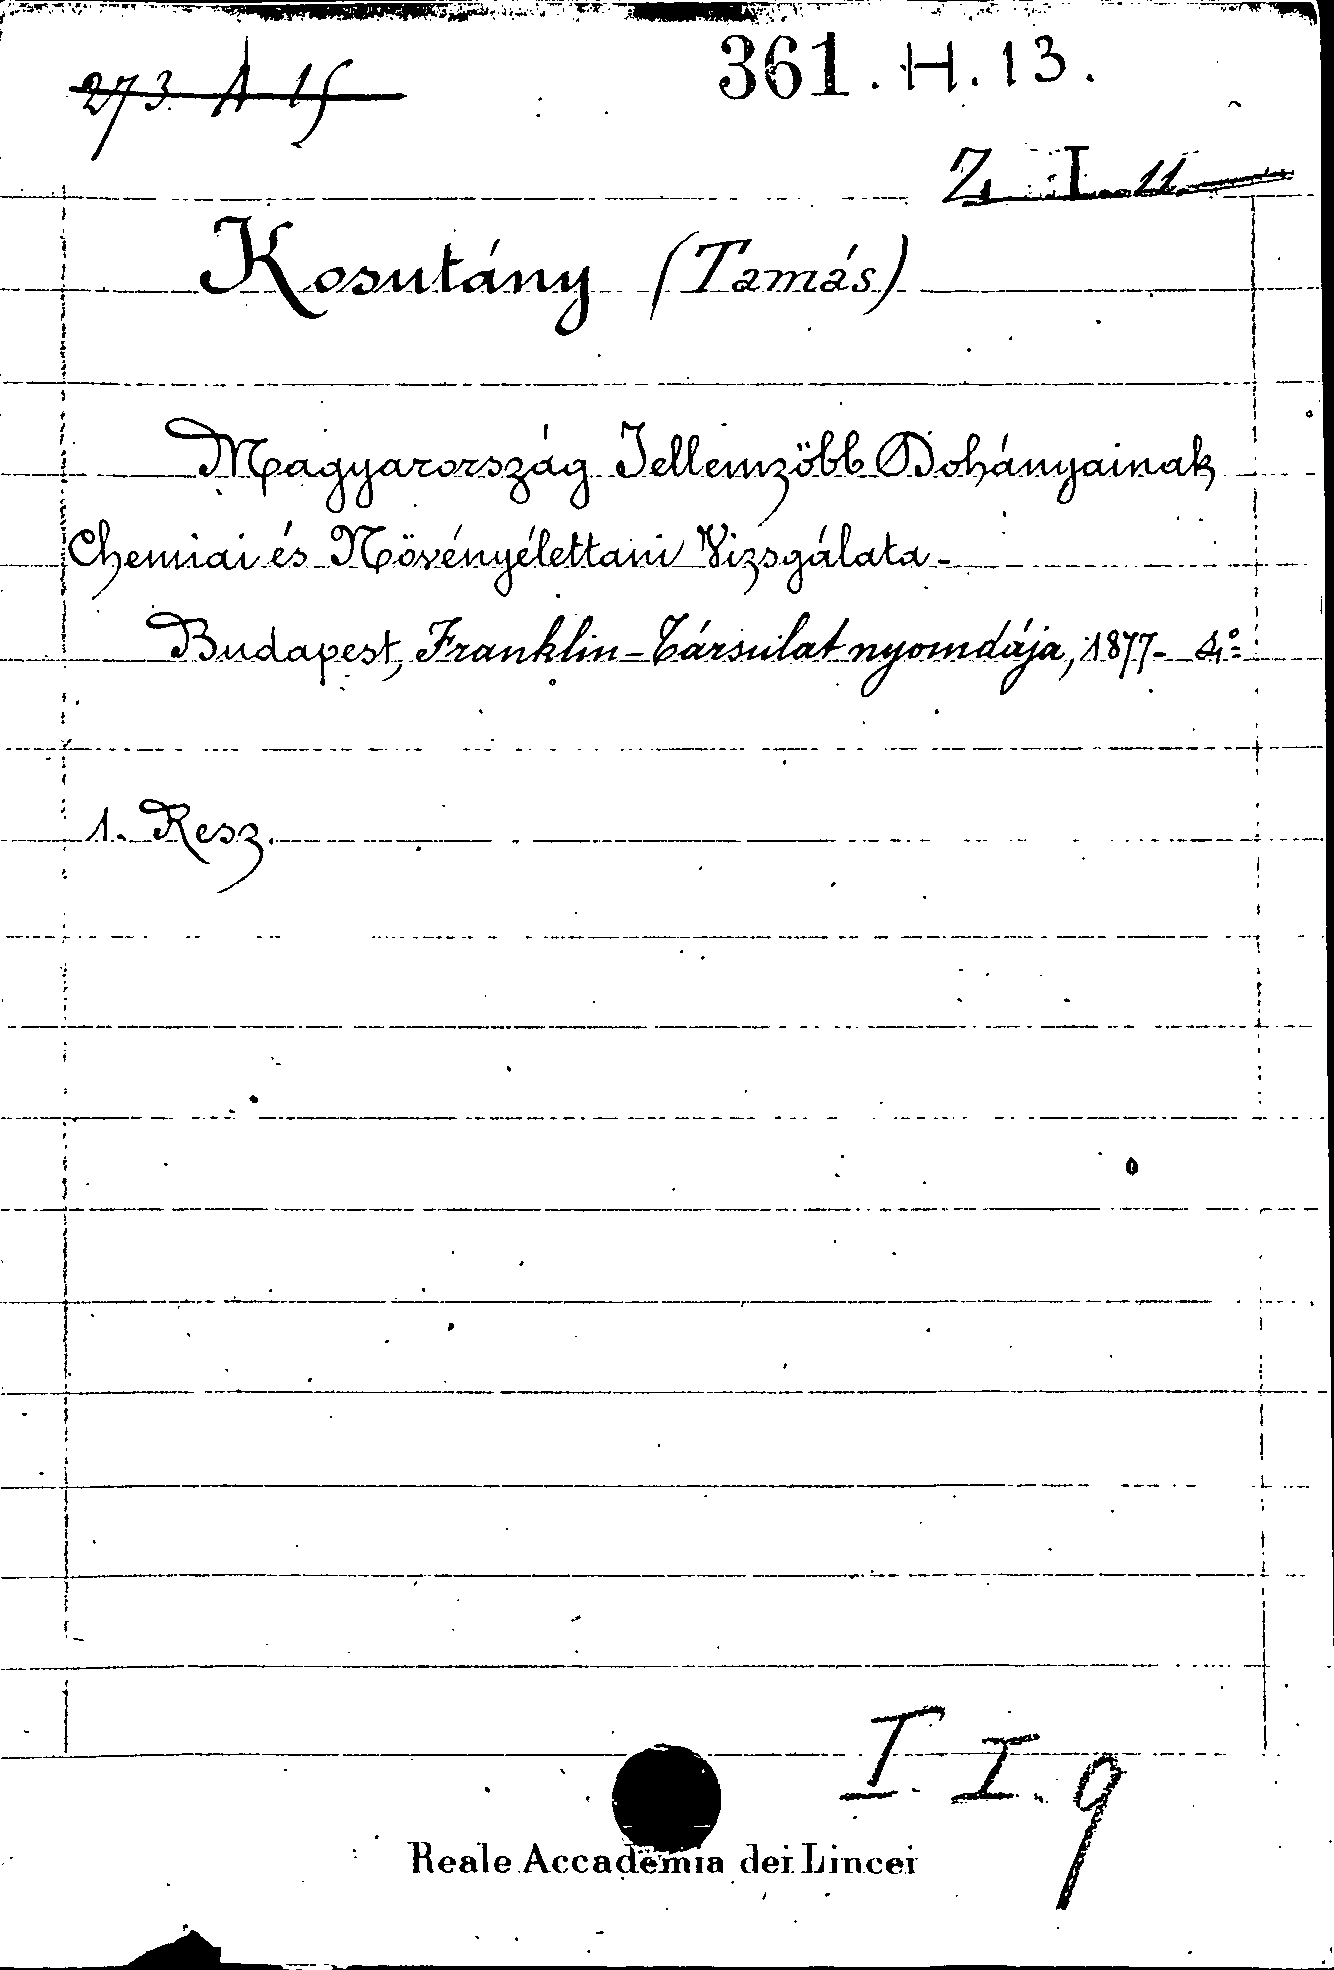 273 A 15
361. H. 13.
Z. I. 11
Kosutány (Tamás)
Magyarország Jellemzöbb Dohányainak
Chemiai és Növényélettani Vizsgálata -
Budapest, Franklin-Társulat nyomdája, 1877- 4°
1. Resz.
I. I. 9
Reale Accademia dei Lincei